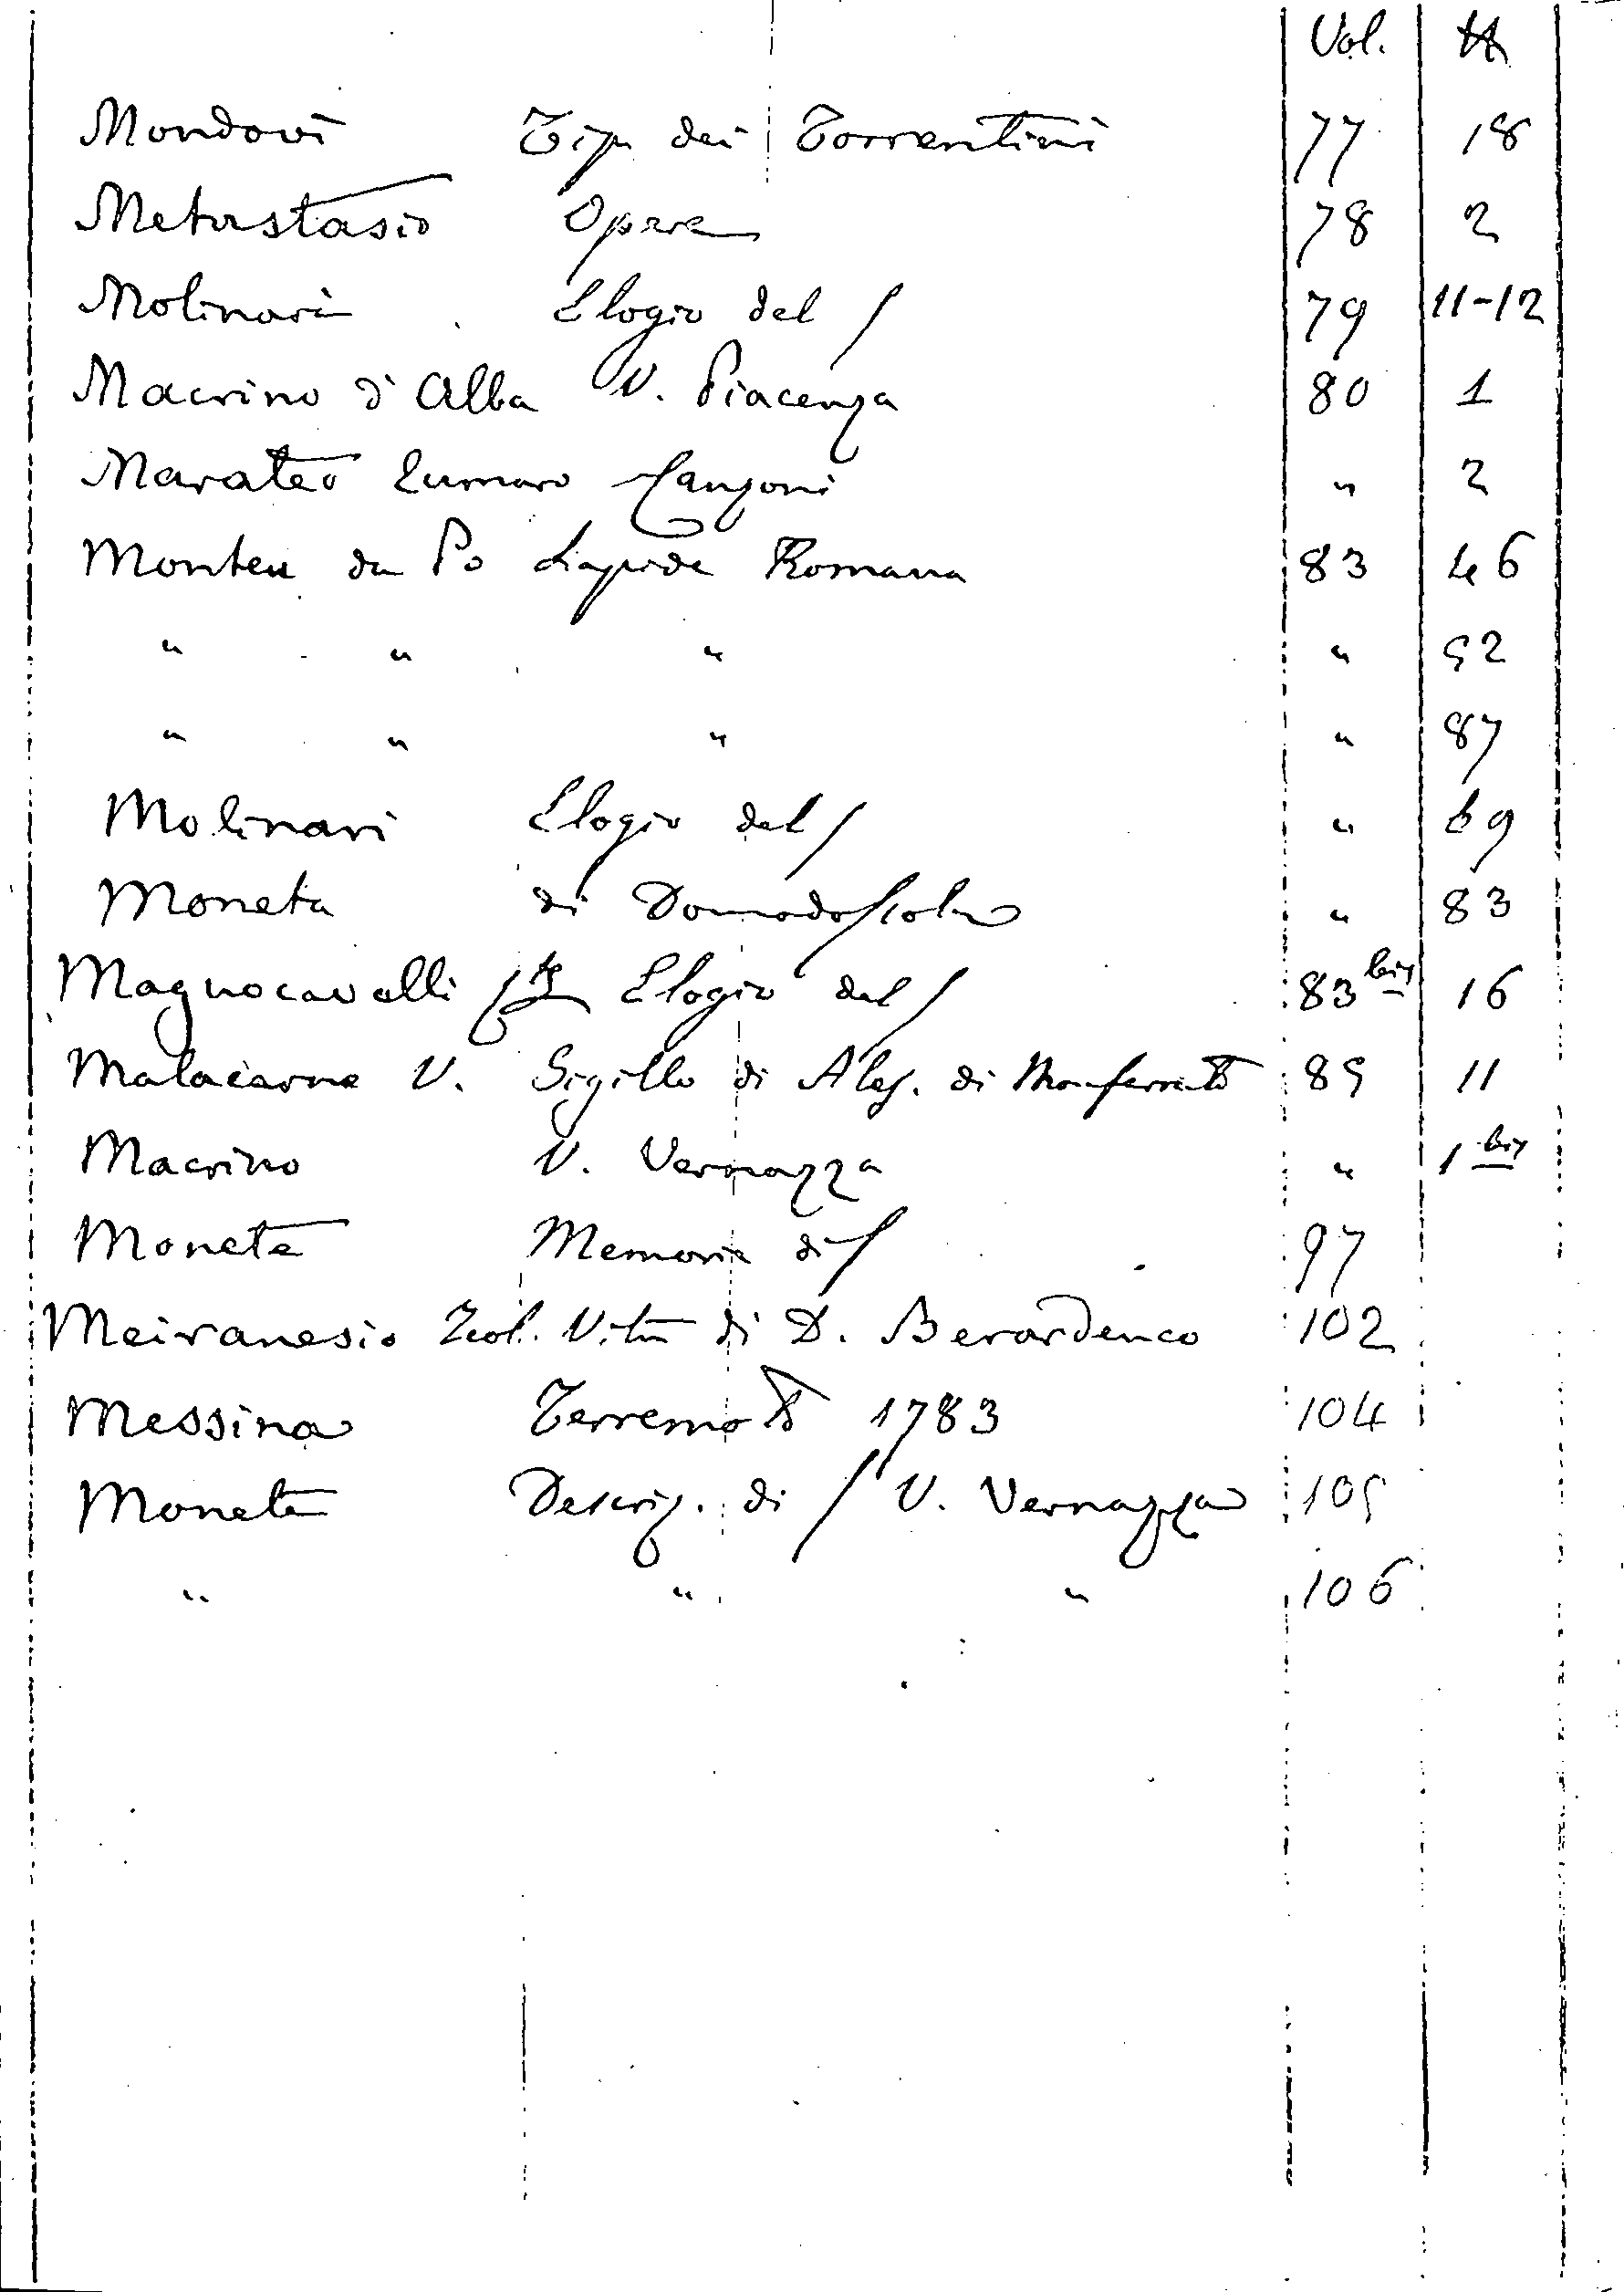 Vol. №
Mondovì Tip dei Torrentini 77 18
Metastasio Opere 78 2
Molinari Elogio del / 79 11-12
Macrino d'Alba V. Piacenza 80 1
Marateo Canzoni " 2
Monteu da Po Lapide Romana 83 46
" " " " 52
" " " " 87
Molinari Elogio del / " 69
Moneta di Domodossola " 83
Magnocavalli Elogio del / 83 bis 16
Malacarne V. Sigillo di Ales. di Monferrato 85 11
Macrino V. Vernazza " 1 bis
Monete Memorie di / 97
Meiranesio Teol. Vita di D. Berardenco 102
Messina Terremoto 1783 104
Monete Descriz. di / V. Vernazza 105
" " " 106